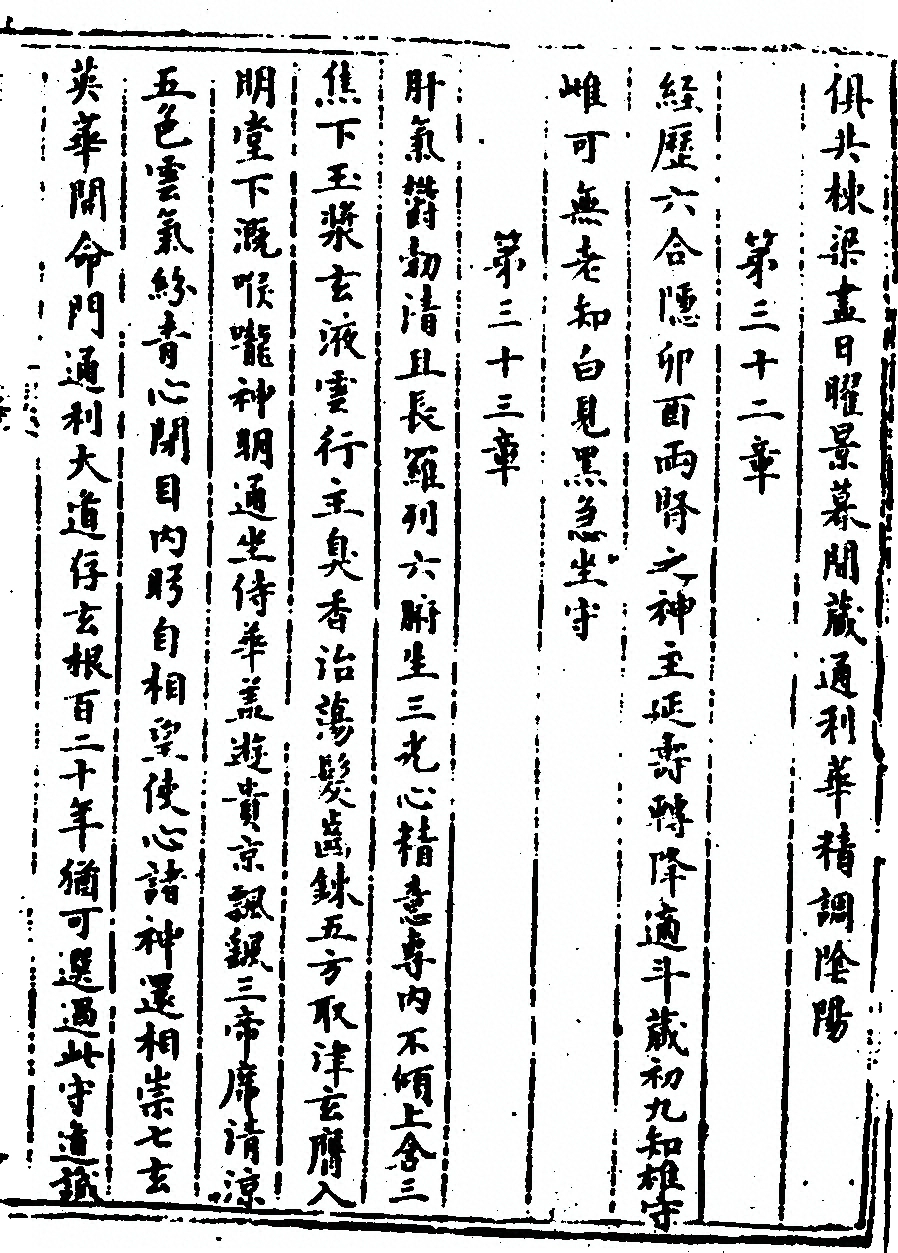 俱共棟梁晝日曜景暮閉藏通利華精調陰陽
第三十二章
経歷六合隱卯酉兩腎之神主延壽轉降適斗藏初九知雄守
雌可無老知白見黑急坐守
第三十三章
肝氣欝勃清且長羅列六腑生三光心精意專內不傾上合三
焦下玉漿玄液雲行主臭香治蕩髮齒錬五方取津玄膺入
明堂下溉喉嚨神明通坐侍華盖遊貴京飄颻三帝席清涼
五色雲氣紛青心閉目內眄自相望使心諸神還相崇七玄
英華開命門通利大道存玄根百二十年猶可還過此守道誠